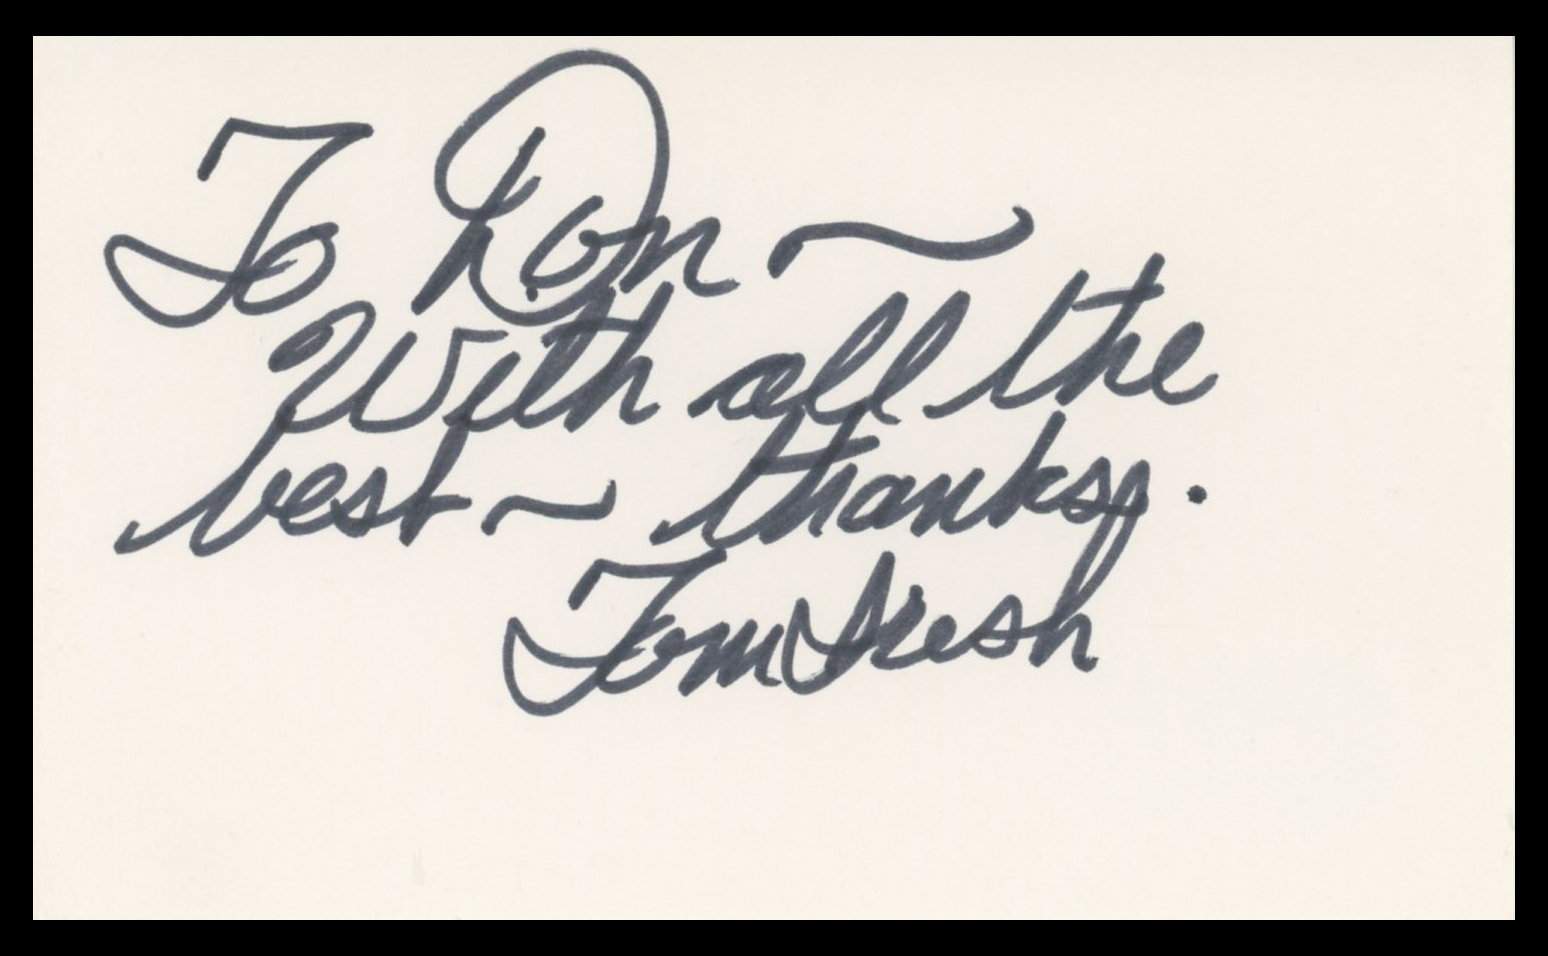 To Don ~
With all the
best ~ thanks.
Tom Tresh